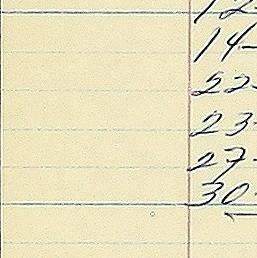 12-
14-
22-
23-
27-
30-